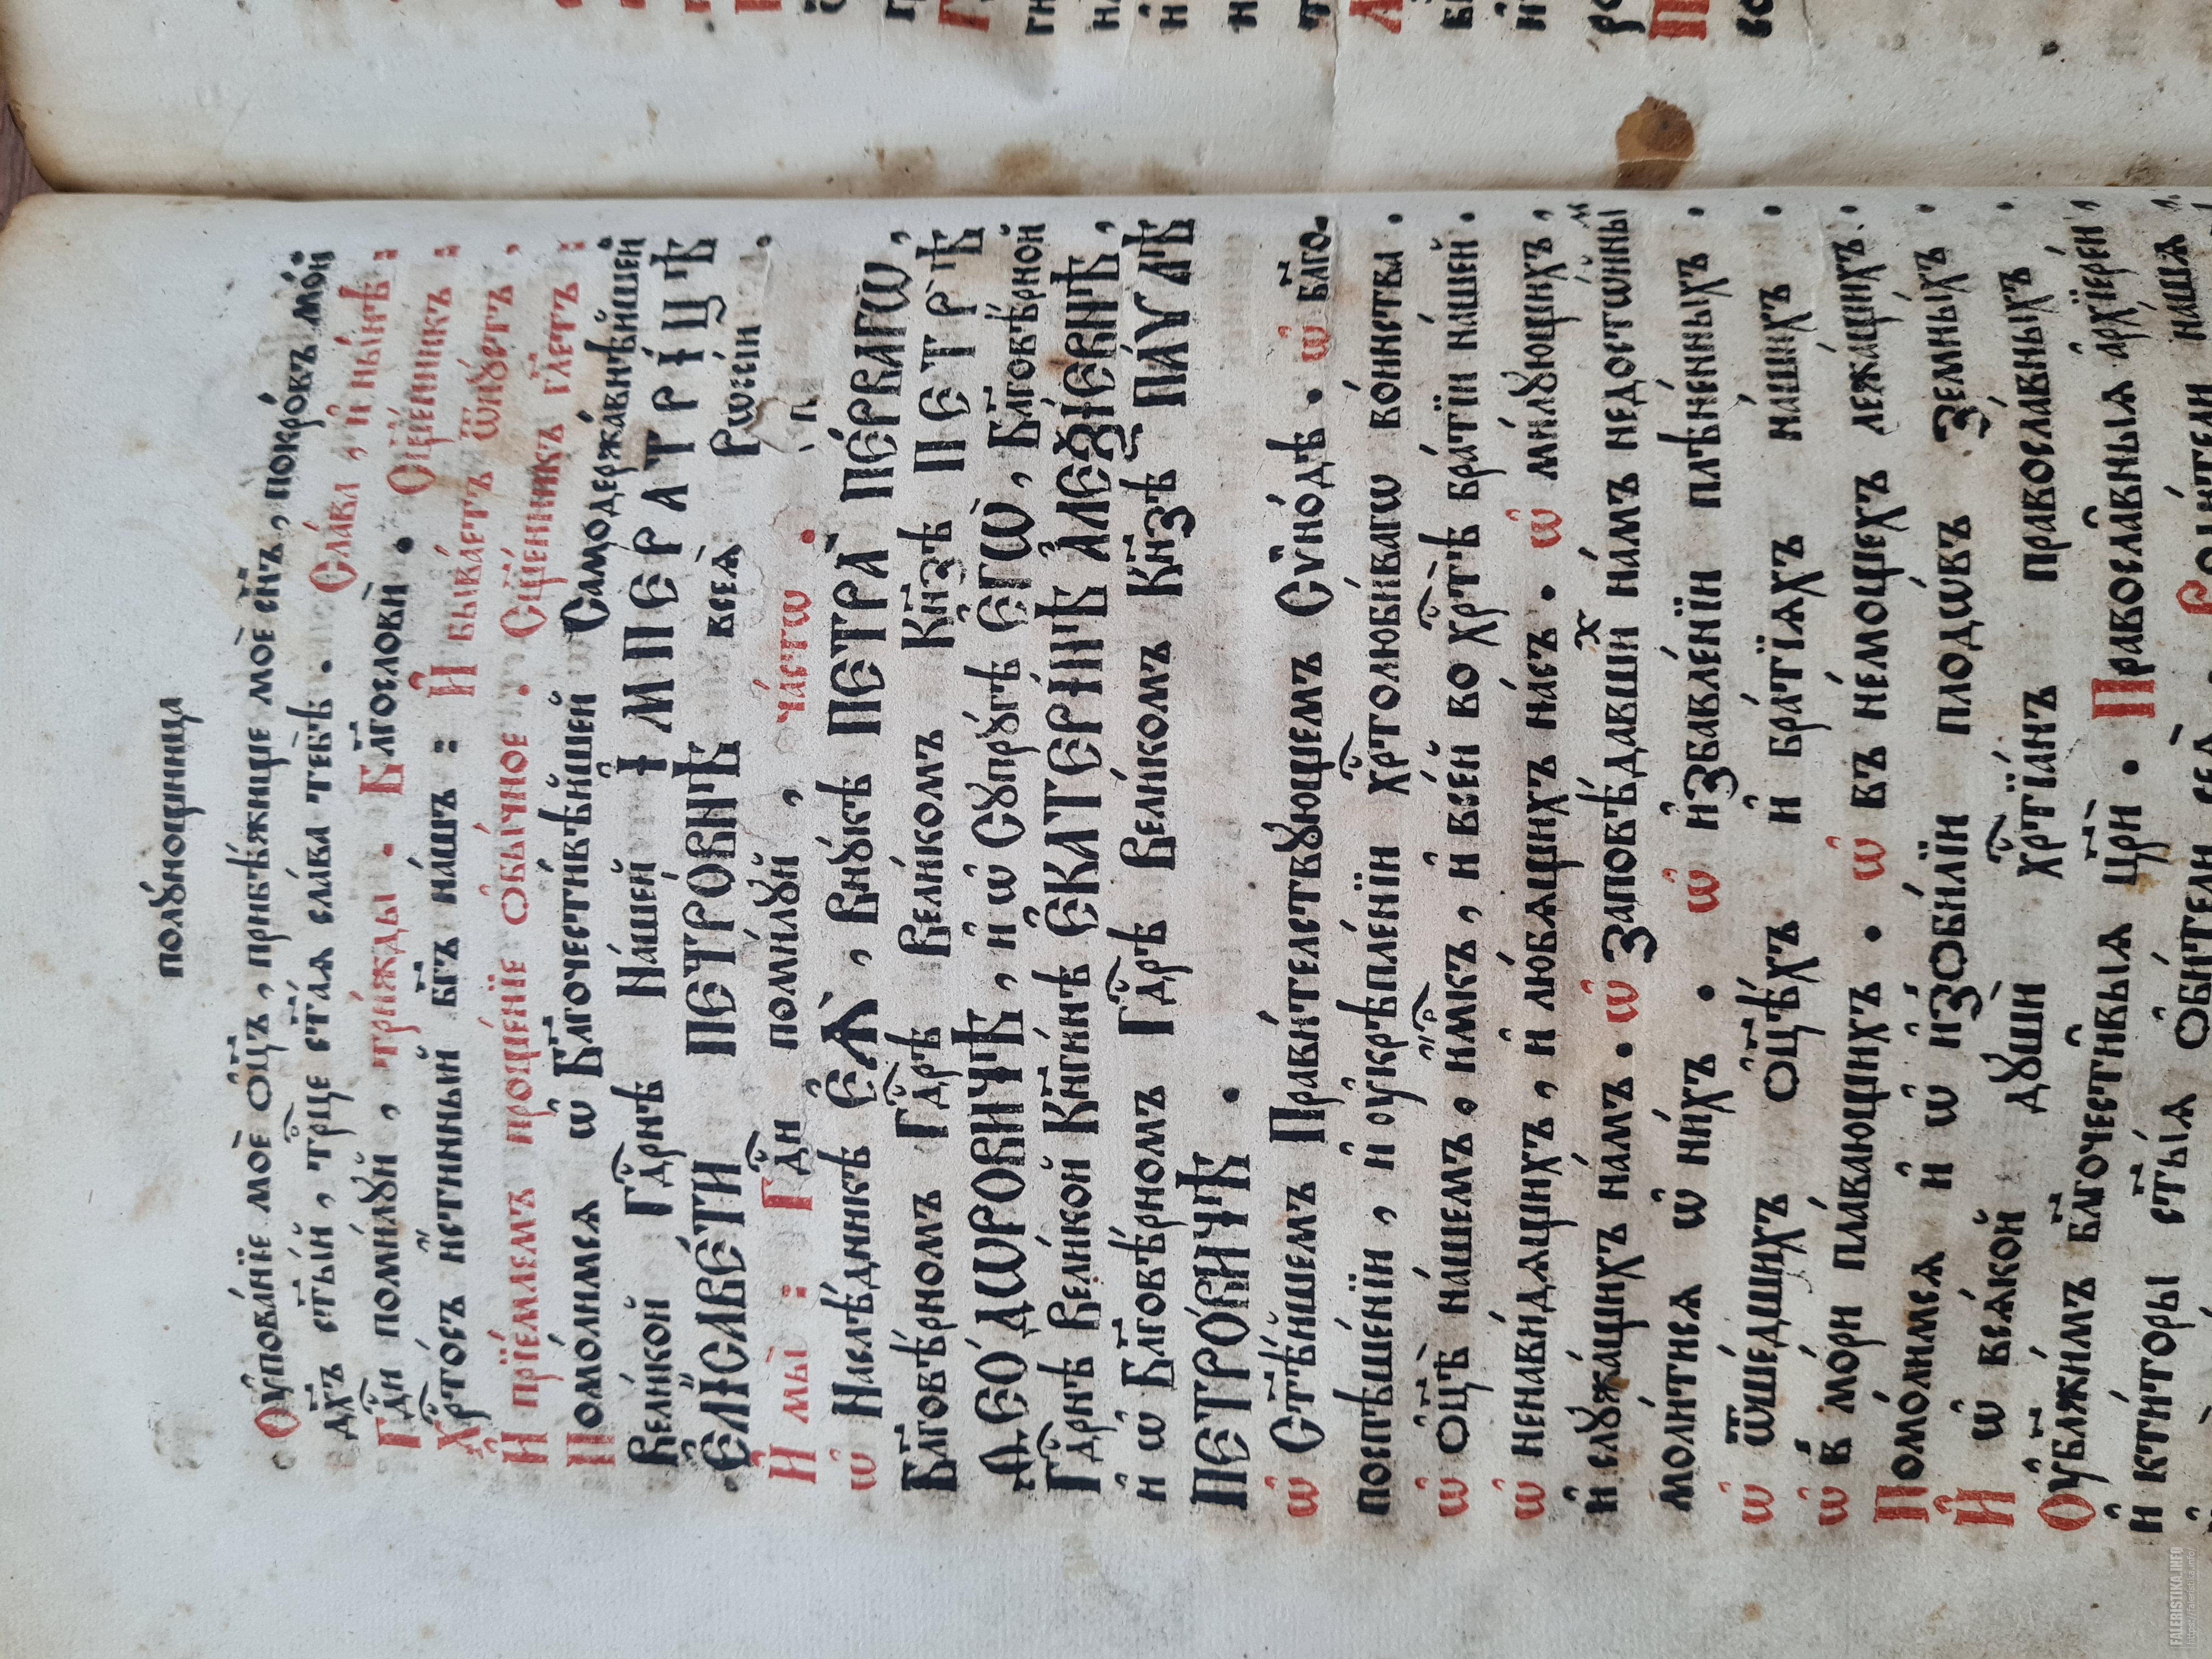 полꙋ́нощница
Оу҆пова́нїе моѐ ѻ҆ц҃ъ, прибѣ́жище моѐ сн҃ъ, покро́въ мо́й
дх҃ъ ст҃ы́й, трⷪ҇це ст҃а́ѧ сла́ва тебѣ̀. Сла́ва, и҆ ны́нѣ:
Гдⷭ҇и поми́лꙋй, три́жды. Бл҃гословѝ. Сщ҃е́нникъ:
Хрⷭ҇то́съ и҆́стинный бг҃ъ на́шъ: И҆ быва́етъ ѿпꙋ́стъ,
И҆ прїе́млемъ проще́нїе ѻ҆бы́чное. Сщ҃е́нникъ гл҃етъ:
Помо́лимсѧ ѡ҆ Бл҃гочести́вѣйшей Самодержа́внѣйшей
Вели́кой Гдⷭ҇рнѣ На́шей І҆МПЕРАТРІ́ЦѢ
Е҆ЛІСАВЕ́ТИ ПЕТРО́ВНѢ всеѧ̀ Рѡссі́и.
И҆ мы̀: Гдⷭ҇и поми́лꙋй, ча́стѡ.
ѡ҆ Наслѣ́дникѣ Е҆Ѧ̀, Внꙋ́кѣ ПЕТРА̀ ПЕ́РВАГѠ,
Бл҃говѣ́рномъ Гдⷭ҇рѣ Вели́комъ Кн҃зѣ ПЕТРѢ̀
Ѳ̇ЕО́ДѠРОВИЧѢ, и҆ ѡ҆ Сꙋпрꙋ́гѣ Е҆ГѠ̀, Бл҃говѣ́рной
Гдⷭ҇рнѣ Вели́кой Кн҃ги́нѣ Е҆КАТЕРІ́НѢ А҆ЛЕѮІ́ЕВНѢ,
и҆ ѡ҆ Бл҃говѣ́рномъ Гдⷭ҇рѣ Вели́комъ Кн҃зѣ ПА́ѴЛѢ
ПЕТРО́ВИЧѢ.
ѡ҆ Ст҃ѣ́йшемъ Прави́телствꙋющемъ Сѷно́дѣ. ѡ҆ бл҃го-
поспѣше́нїи, и҆ оу҆крѣпле́нїи хрⷭ҇толюби́вагѡ во́инства.
ѡ҆ ѻ҆ц҃ѣ̀ на́шемъ, и҆мⷬ҇къ, и҆ все́й во хрⷭ҇тѣ̀ бра́тїи на́шей.
ѡ҆ ненави́дѧщихъ, и҆ лю́бѧщихъ на́съ. ѡ҆ ми́лꙋющихъ,
и҆ слꙋжа́щихъ на́мъ. ѡ҆ заповѣ́давшиⷯ на́мъ недостѡ́йныⷨ
моли́тисѧ ѡ҆ ни́хъ. ѡ҆ и҆збавле́нїи плѣне́нныхъ.
ѡ҆ ѿше́дшихъ ѻ҆ц҃ѣ́хъ и҆ бра́тїѧхъ на́шихъ.
ѡ҆ в̾ мо́ри пла́вающихъ. ѡ҆ въ не́мощехъ лежа́щихъ.
Помо́лимсѧ и҆ ѡ҆ и҆зоби́лїи плодѡ́въ земны́хъ.
И҆ ѡ҆ всѧ́кой дꙋшѝ хрⷭ҇тїа́нъ правосла́вныхъ.
Оу҆бл҃жи́мъ бл҃гочести̑выѧ цр҃и̑. Правосла̑вныѧ а҆рхїере́и,
и҆ кти́торы ст҃ы́ѧ ѻ҆би́тели сеѧ̀. Роди́тели на́шѧ,
FALERISTIKA.INFO
https://faleristika.info/